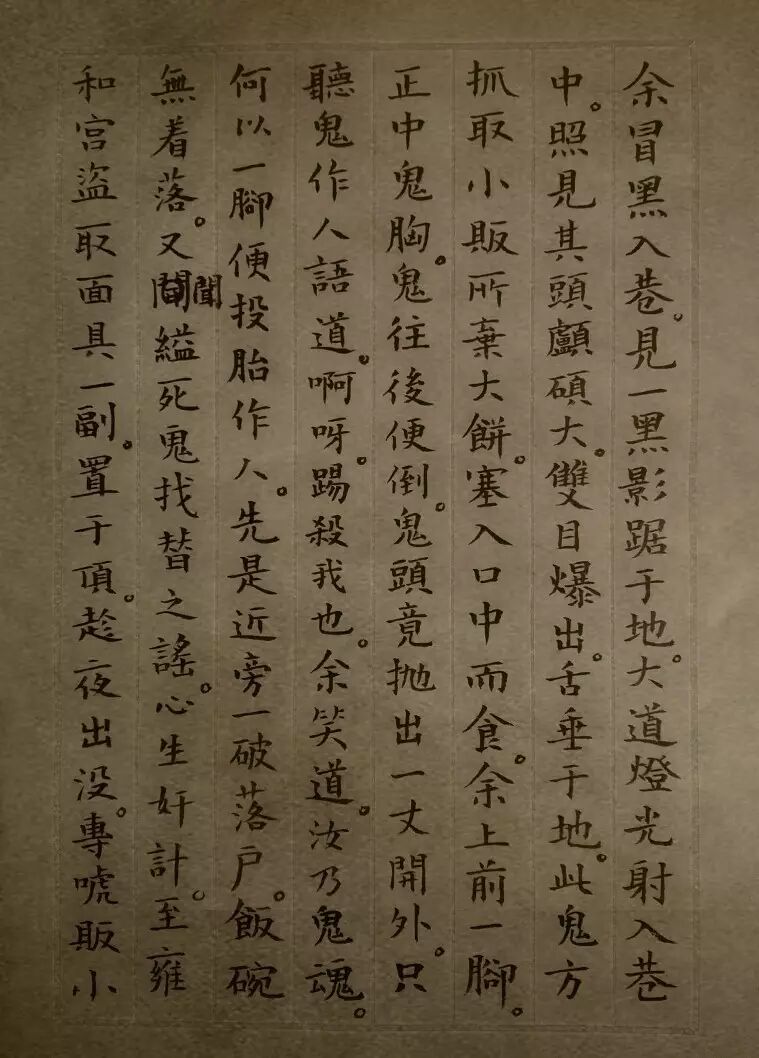 余冒黑入巷。見一黑影踞于地。大道燈光射入巷
中。照見其頭顱碩大。雙目爆出。舌垂于地。此鬼方
抓取小販所棄大餅。塞入口中而食。余上前一腳。
正中鬼胸。鬼往後便倒。鬼頭竟拋出一丈開外。只
聽鬼作人語道。啊呀。踢殺我也。余笑道。汝乃鬼魂。
何以一腳便投胎作人。先是近旁一破落户。飯碗
無着落。又聞縊死鬼找替之謠。心生奸計。至雍
和宫盜取面具一副。置于頂。趁夜出没。專唬販小